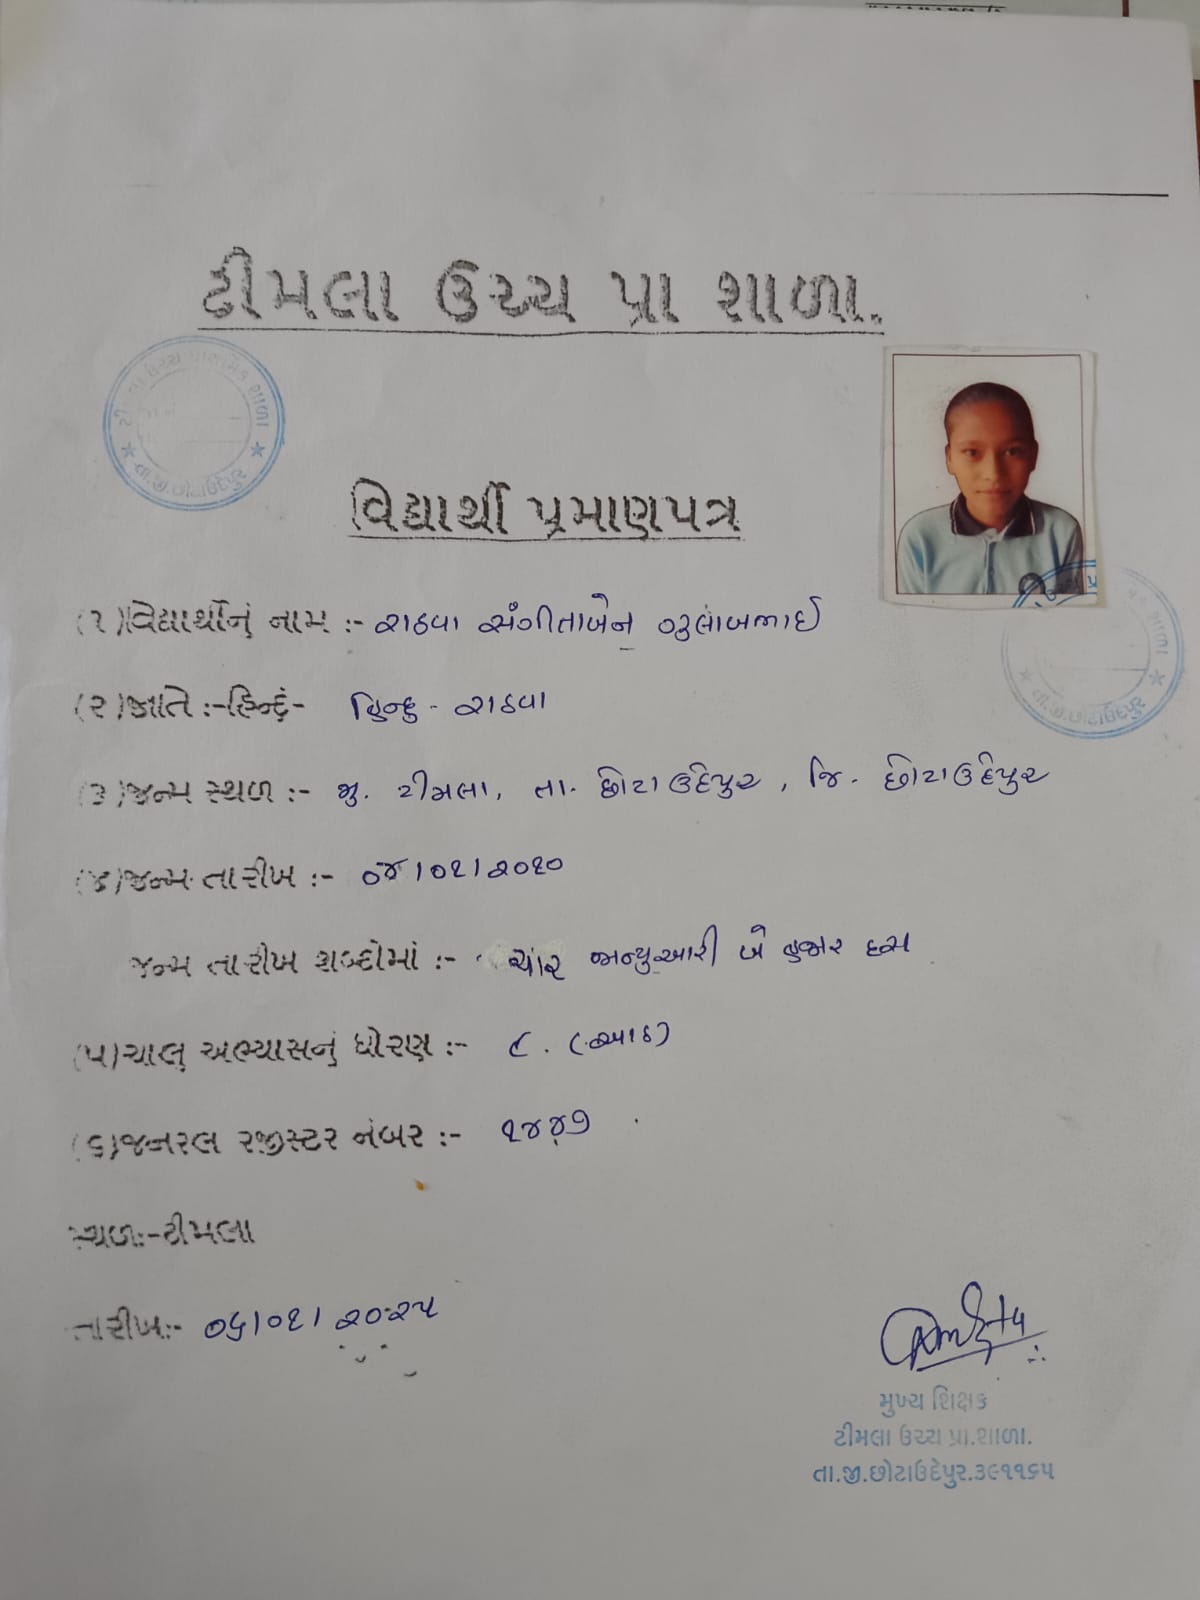 ટીમલા ઉચ્ચ પ્રા શાળા.
તા.જી.છોટાઉદેપુર
વિદ્યાર્થી પ્રમાણપત્ર
(૧)વિદ્યાર્થીનું નામ :- રાઠવા સંગીતાબેન ગુલાબભાઈ
(૨)જાતિ :-હિન્દું- હિન્દુ - રાઠવા
તા.જી.છોટાઉદેપુર
(૩)જન્મ સ્થળ :- મુ. ટીમલા, તા. છોટાઉદેપુર, જિ. છોટાઉદેપુર
(૪)જન્મ તારીખ :- ૦૪/૦૧/૨૦૧૦
જન્મ તારીખ શબ્દોમાં :- ચાર જાન્યુઆરી બે હજાર દસ
(૫)ચાલુ અભ્યાસનું ધોરણ :- ૮. (આઠ)
(૬)જનરલ રજીસ્ટર નંબર :- ૧૪૪૭
સ્થળ:-ટીમલા
તારીખ:- ૦૬/૦૧/૨૦૨૫
મુખ્ય શિક્ષક
ટીમલા ઉચ્ચ પ્રા.શાળા.
તા.જી.છોટાઉદેપુર.૩૯૧૧૬૫